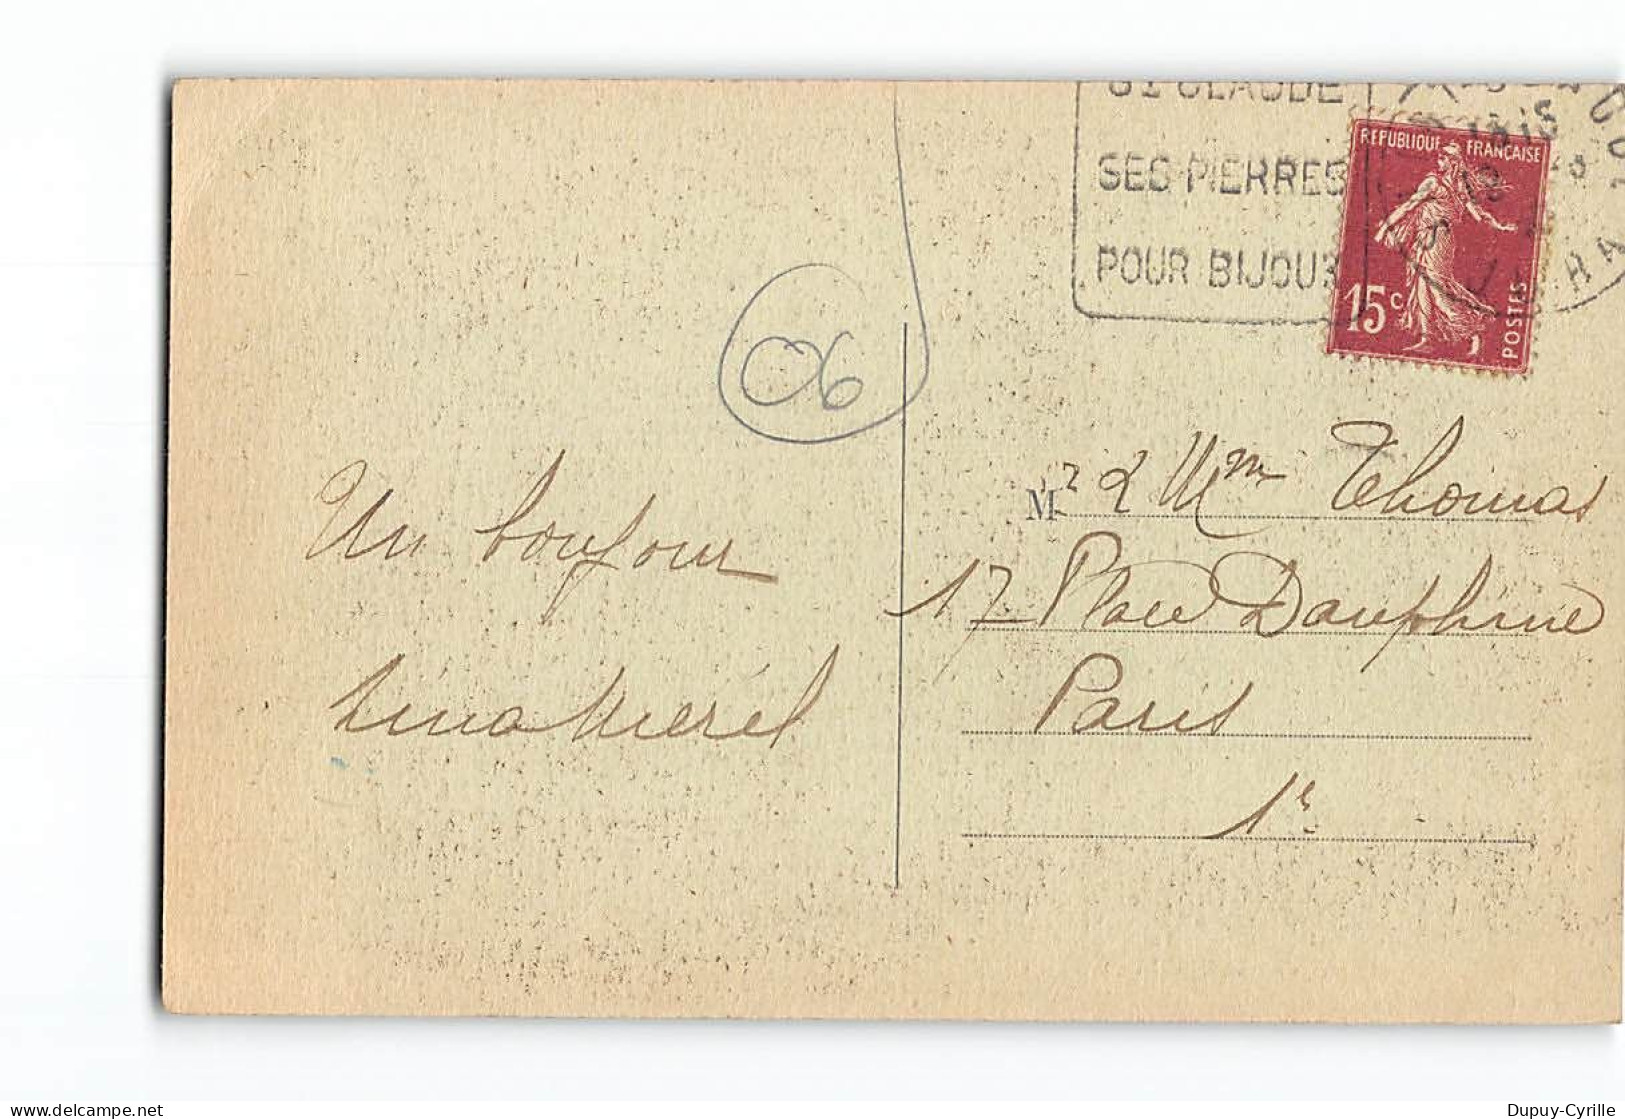 ST CLAUDE
SES PIERRES
POUR BIJOUX
REPUBLIQUE FRANÇAISE
15c
POSTES
JURA
06
Un bonjour
Mr & Mme Thomas
17 Place Dauphine
Paris
1r
delcampe.net
Dupuy-Cyrille